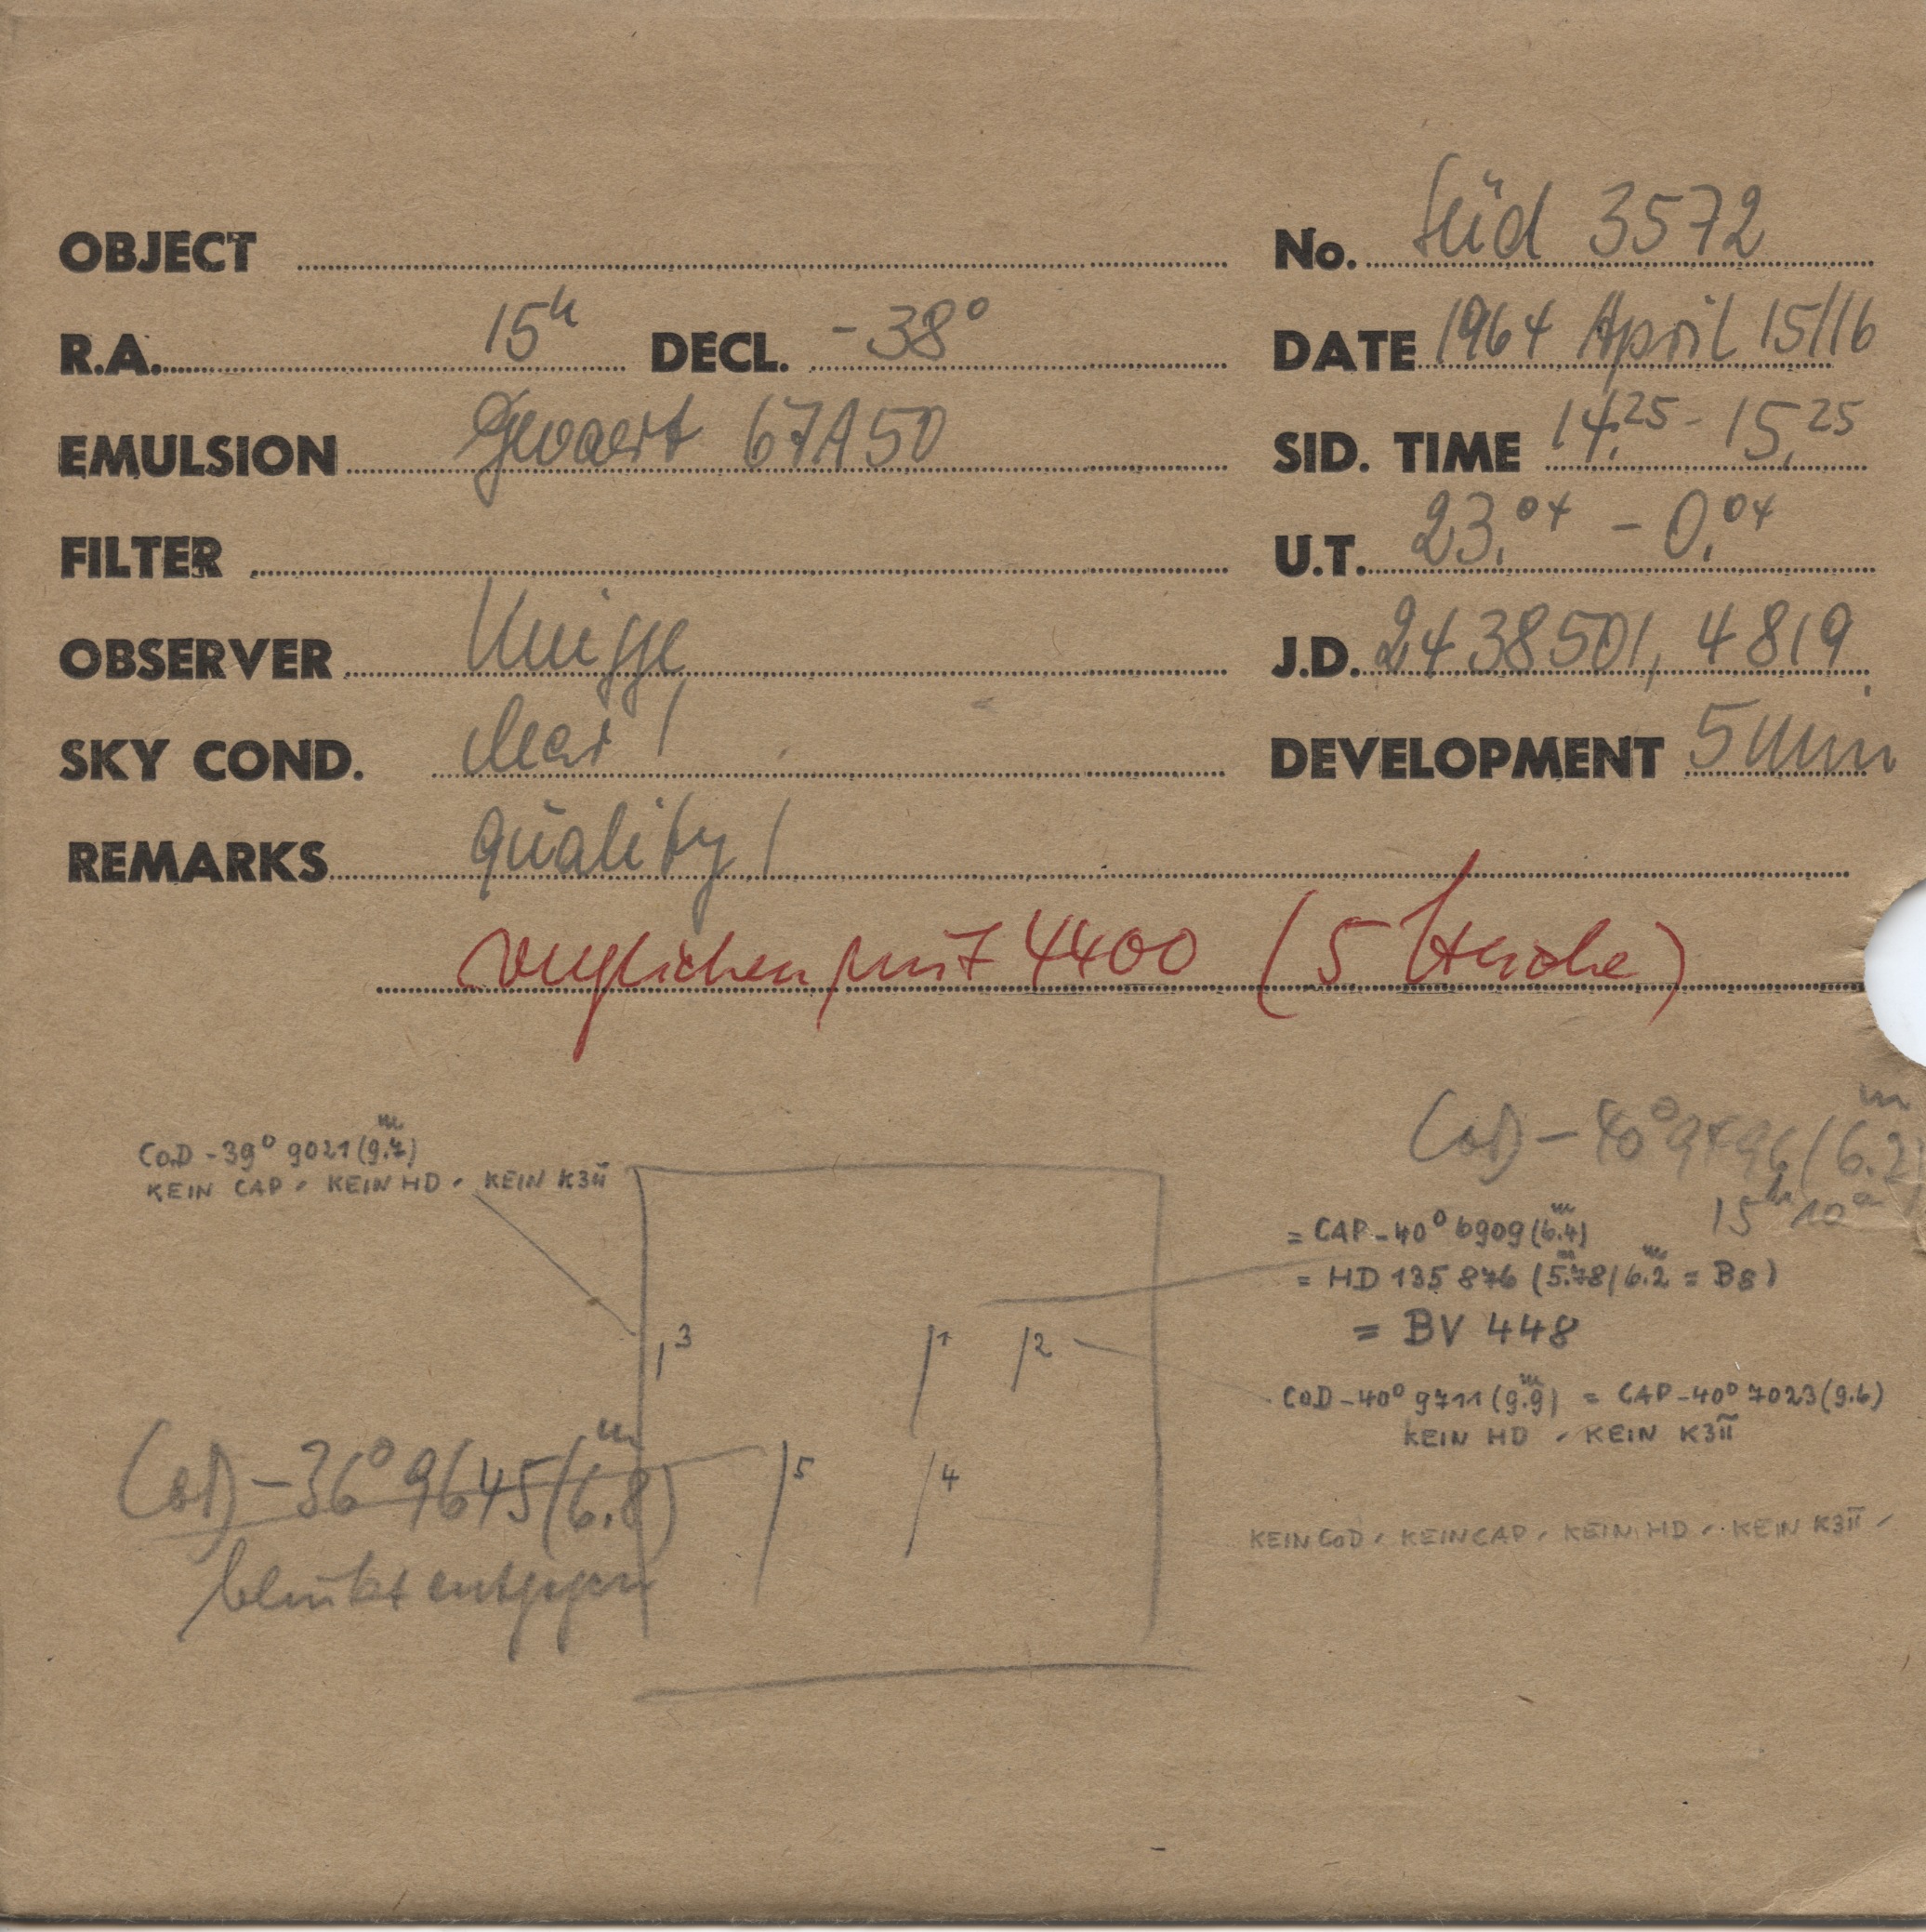 OBJECT
No. Süd 3572
R.A. 15h DECL. -38°
DATE 1964 April 15/16
EMULSION Gevaert 67A50
SID. TIME 14.25 - 15.25
FILTER
U.T. 23.04 - 0.04
OBSERVER Knigge
J.D. 2438501,4819
SKY COND. clear!
DEVELOPMENT 5 min
REMARKS quality!
verglichen mit 4400 (5 Striche)
CoD -39° 9021 (9.7m)
KEIN CAP. KEIN HD. KEIN K3II
CoD -40° 9496 (6.2m)
15h 10m
= CAP -40° 6909 (6.4m)
= HD 135 876 (5.78m/6.2m = B8)
= BV 448
3
1
2
CoD -40° 9711 (9.9m) = CAP -40° 7023 (9.6)
KEIN HD. KEIN K3II
CoD -36° 9645 (6.8m)
5
4
KEIN CoD. KEIN CAP. KEIN HD. KEIN K3II
blinkt entgegen